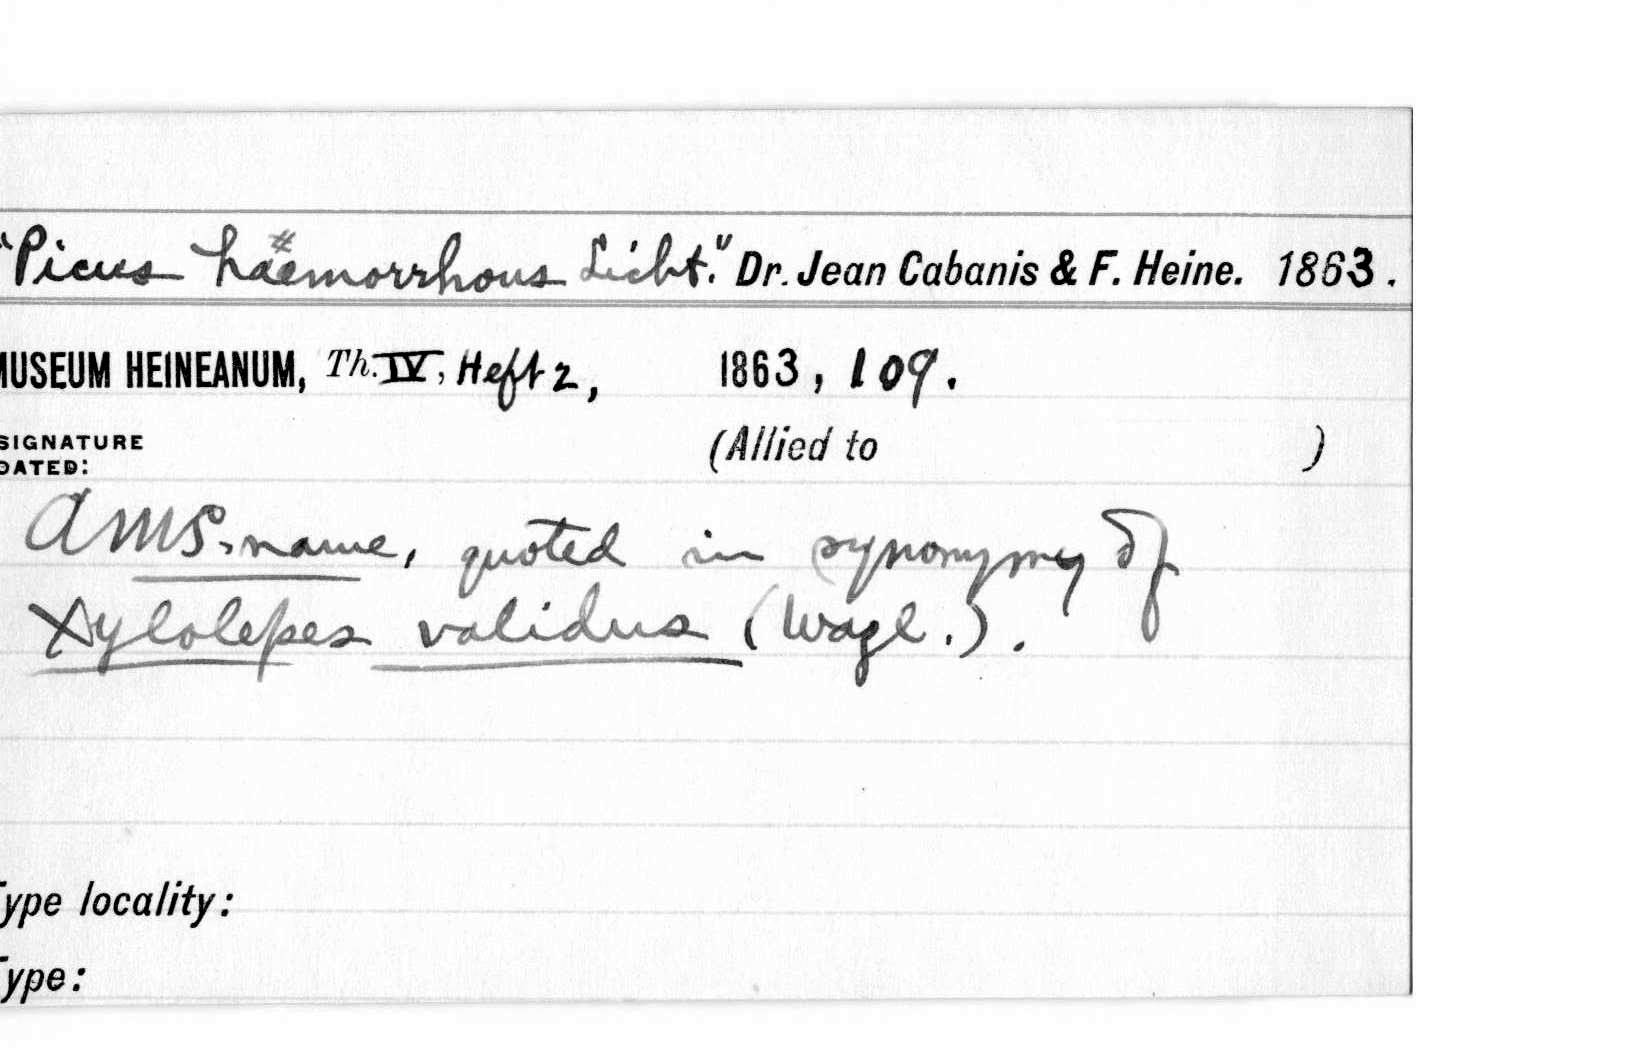 "Picus haemorrhous Licht." Dr. Jean Cabanis & F. Heine. 1863.
MUSEUM HEINEANUM, Th. IV, Heft 2, 1863, 109.
SIGNATURE (Allied to )
DATED:
A MS. name, quoted in synonymy of
Xylolepes validus (Wagl.).
Type locality:
Type: